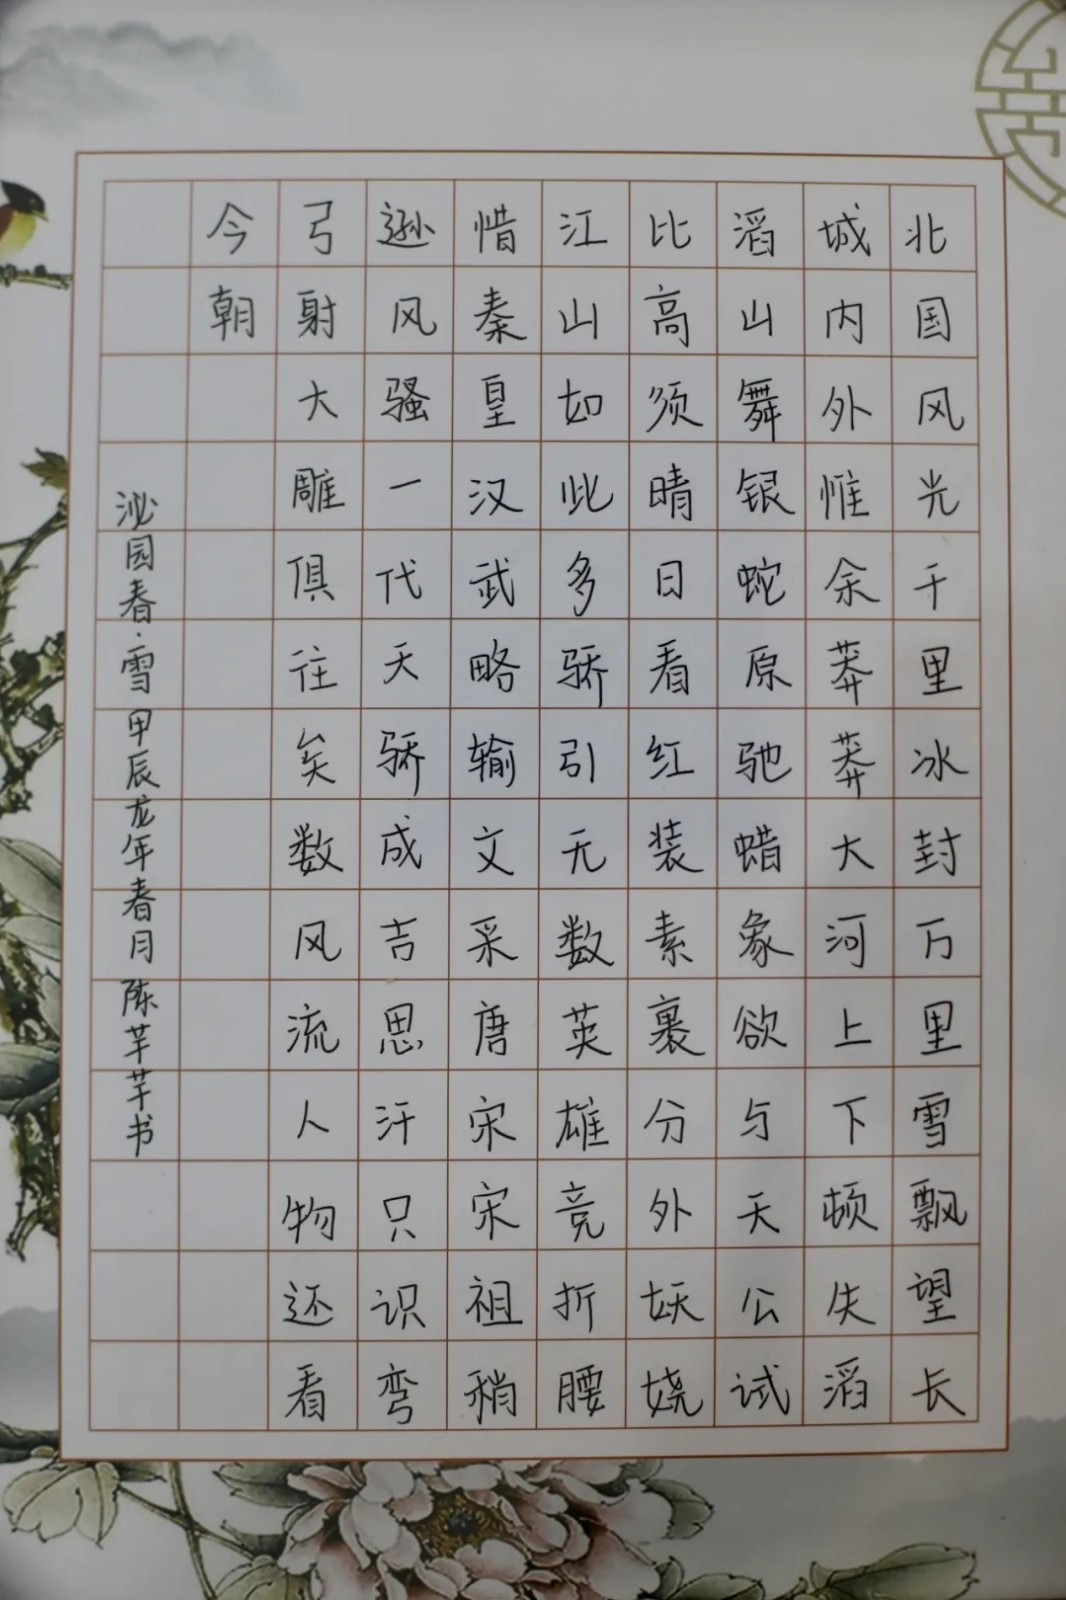 北国风光千里冰封万里雪飘望长
城内外惟余莽莽大河上下顿失滔
滔山舞银蛇原驰蜡象欲与天公试
比高须晴日看红装素裹分外妖娆
江山如此多骄引无数英雄竞折腰
惜秦皇汉武略输文采唐宋宋祖稍
逊风骚一代天骄成吉思汗只识弯
弓射大雕俱往矣数风流人物还看
今朝
泌园春·雪 甲辰龙年春月 陈芊芊书